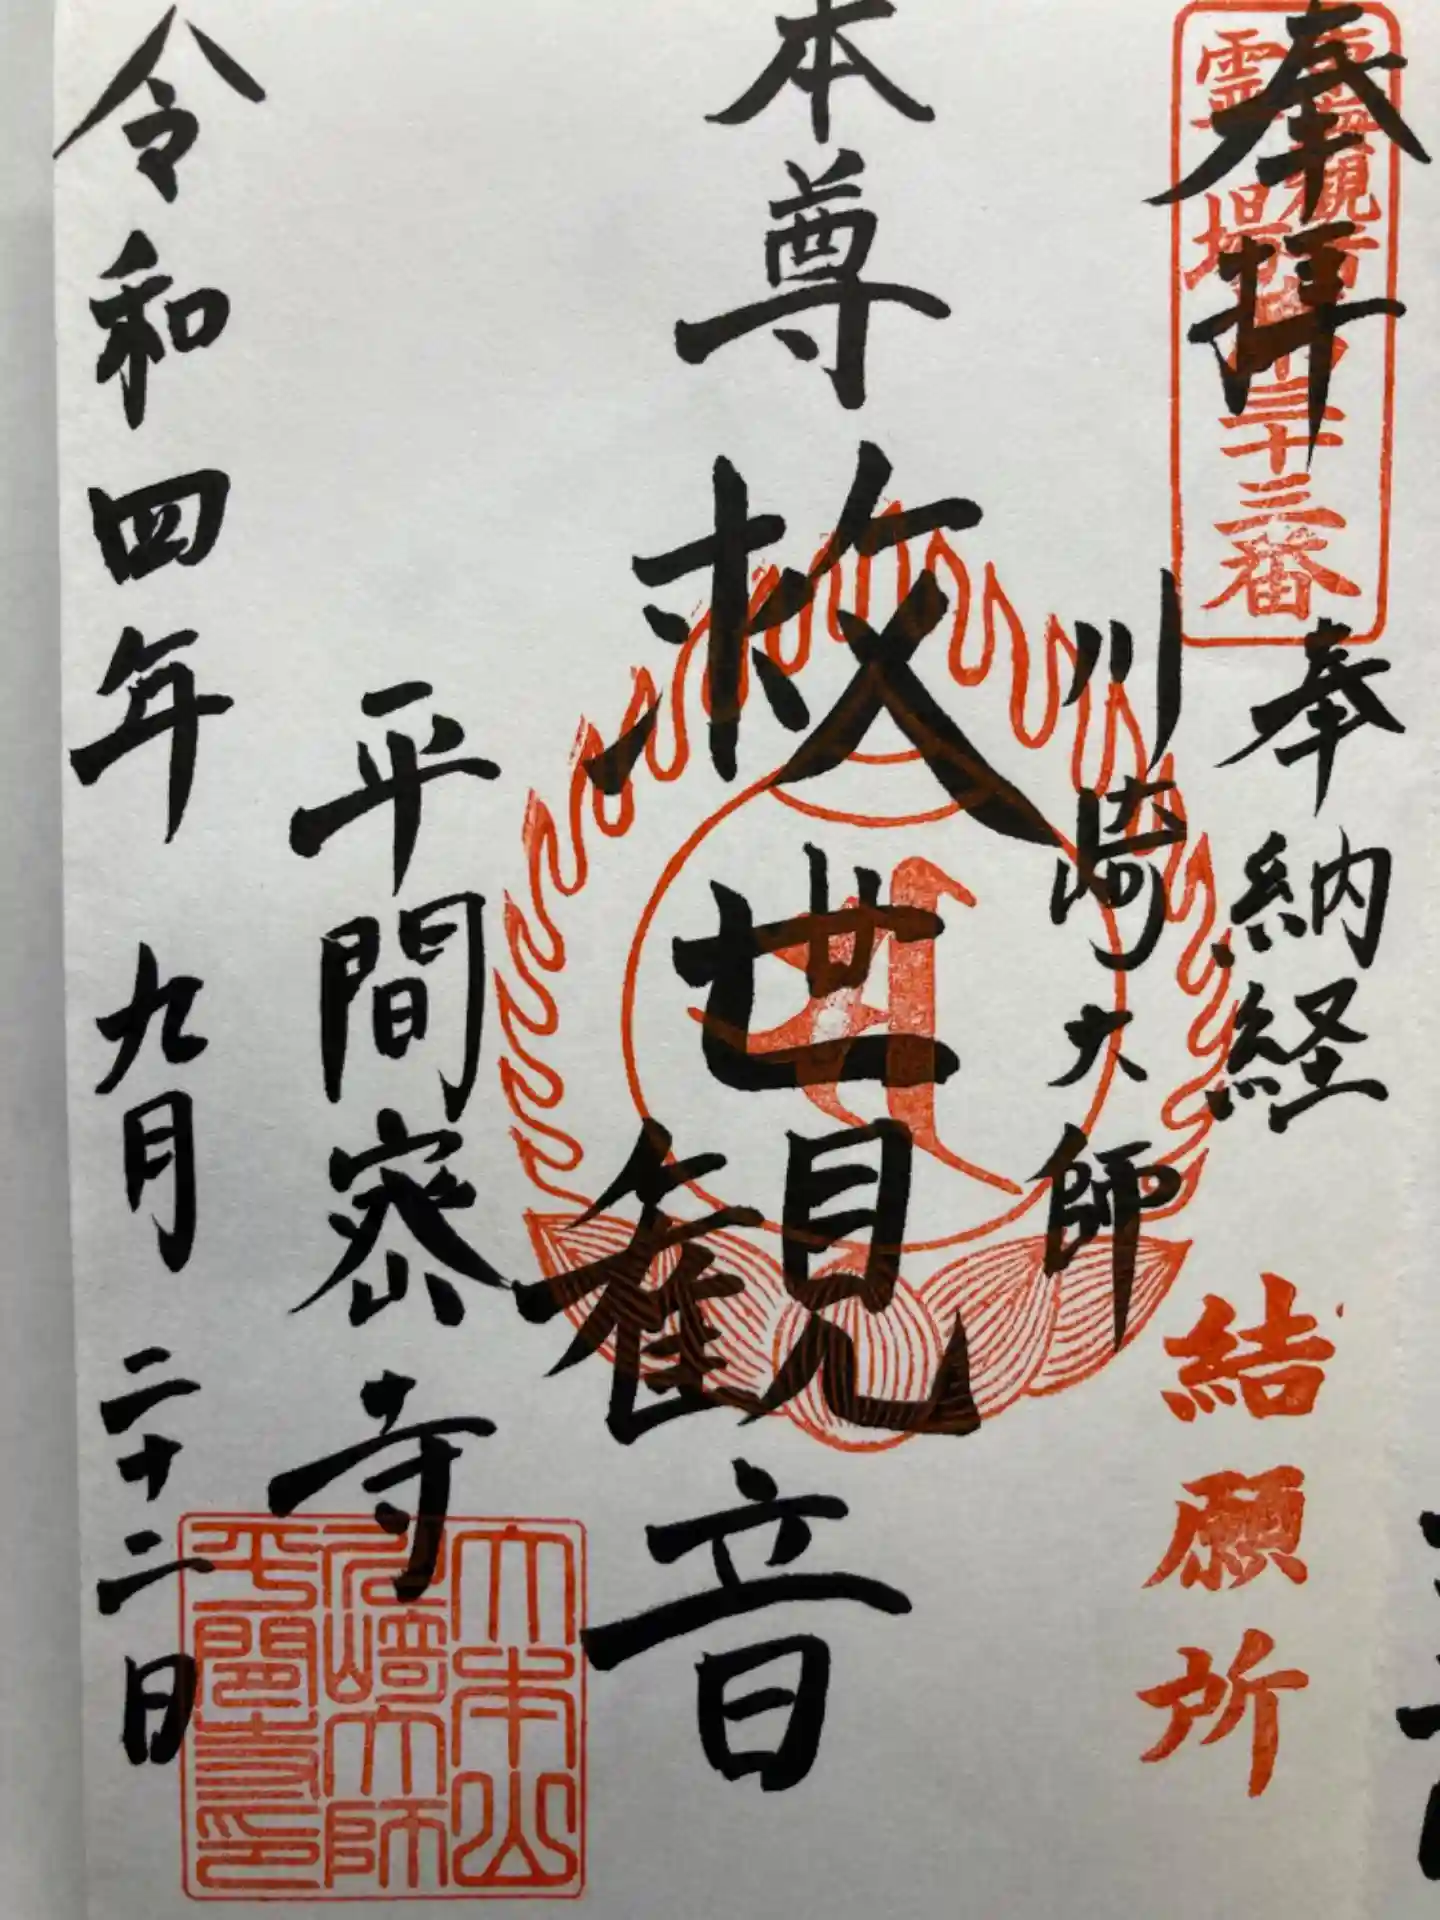 奉拝
霊場
三十三番
奉納経
結願所
川崎大師
本尊
救世観音
平間寺
令和四年 九月 二十二日
大本山
川崎大師
平間寺印